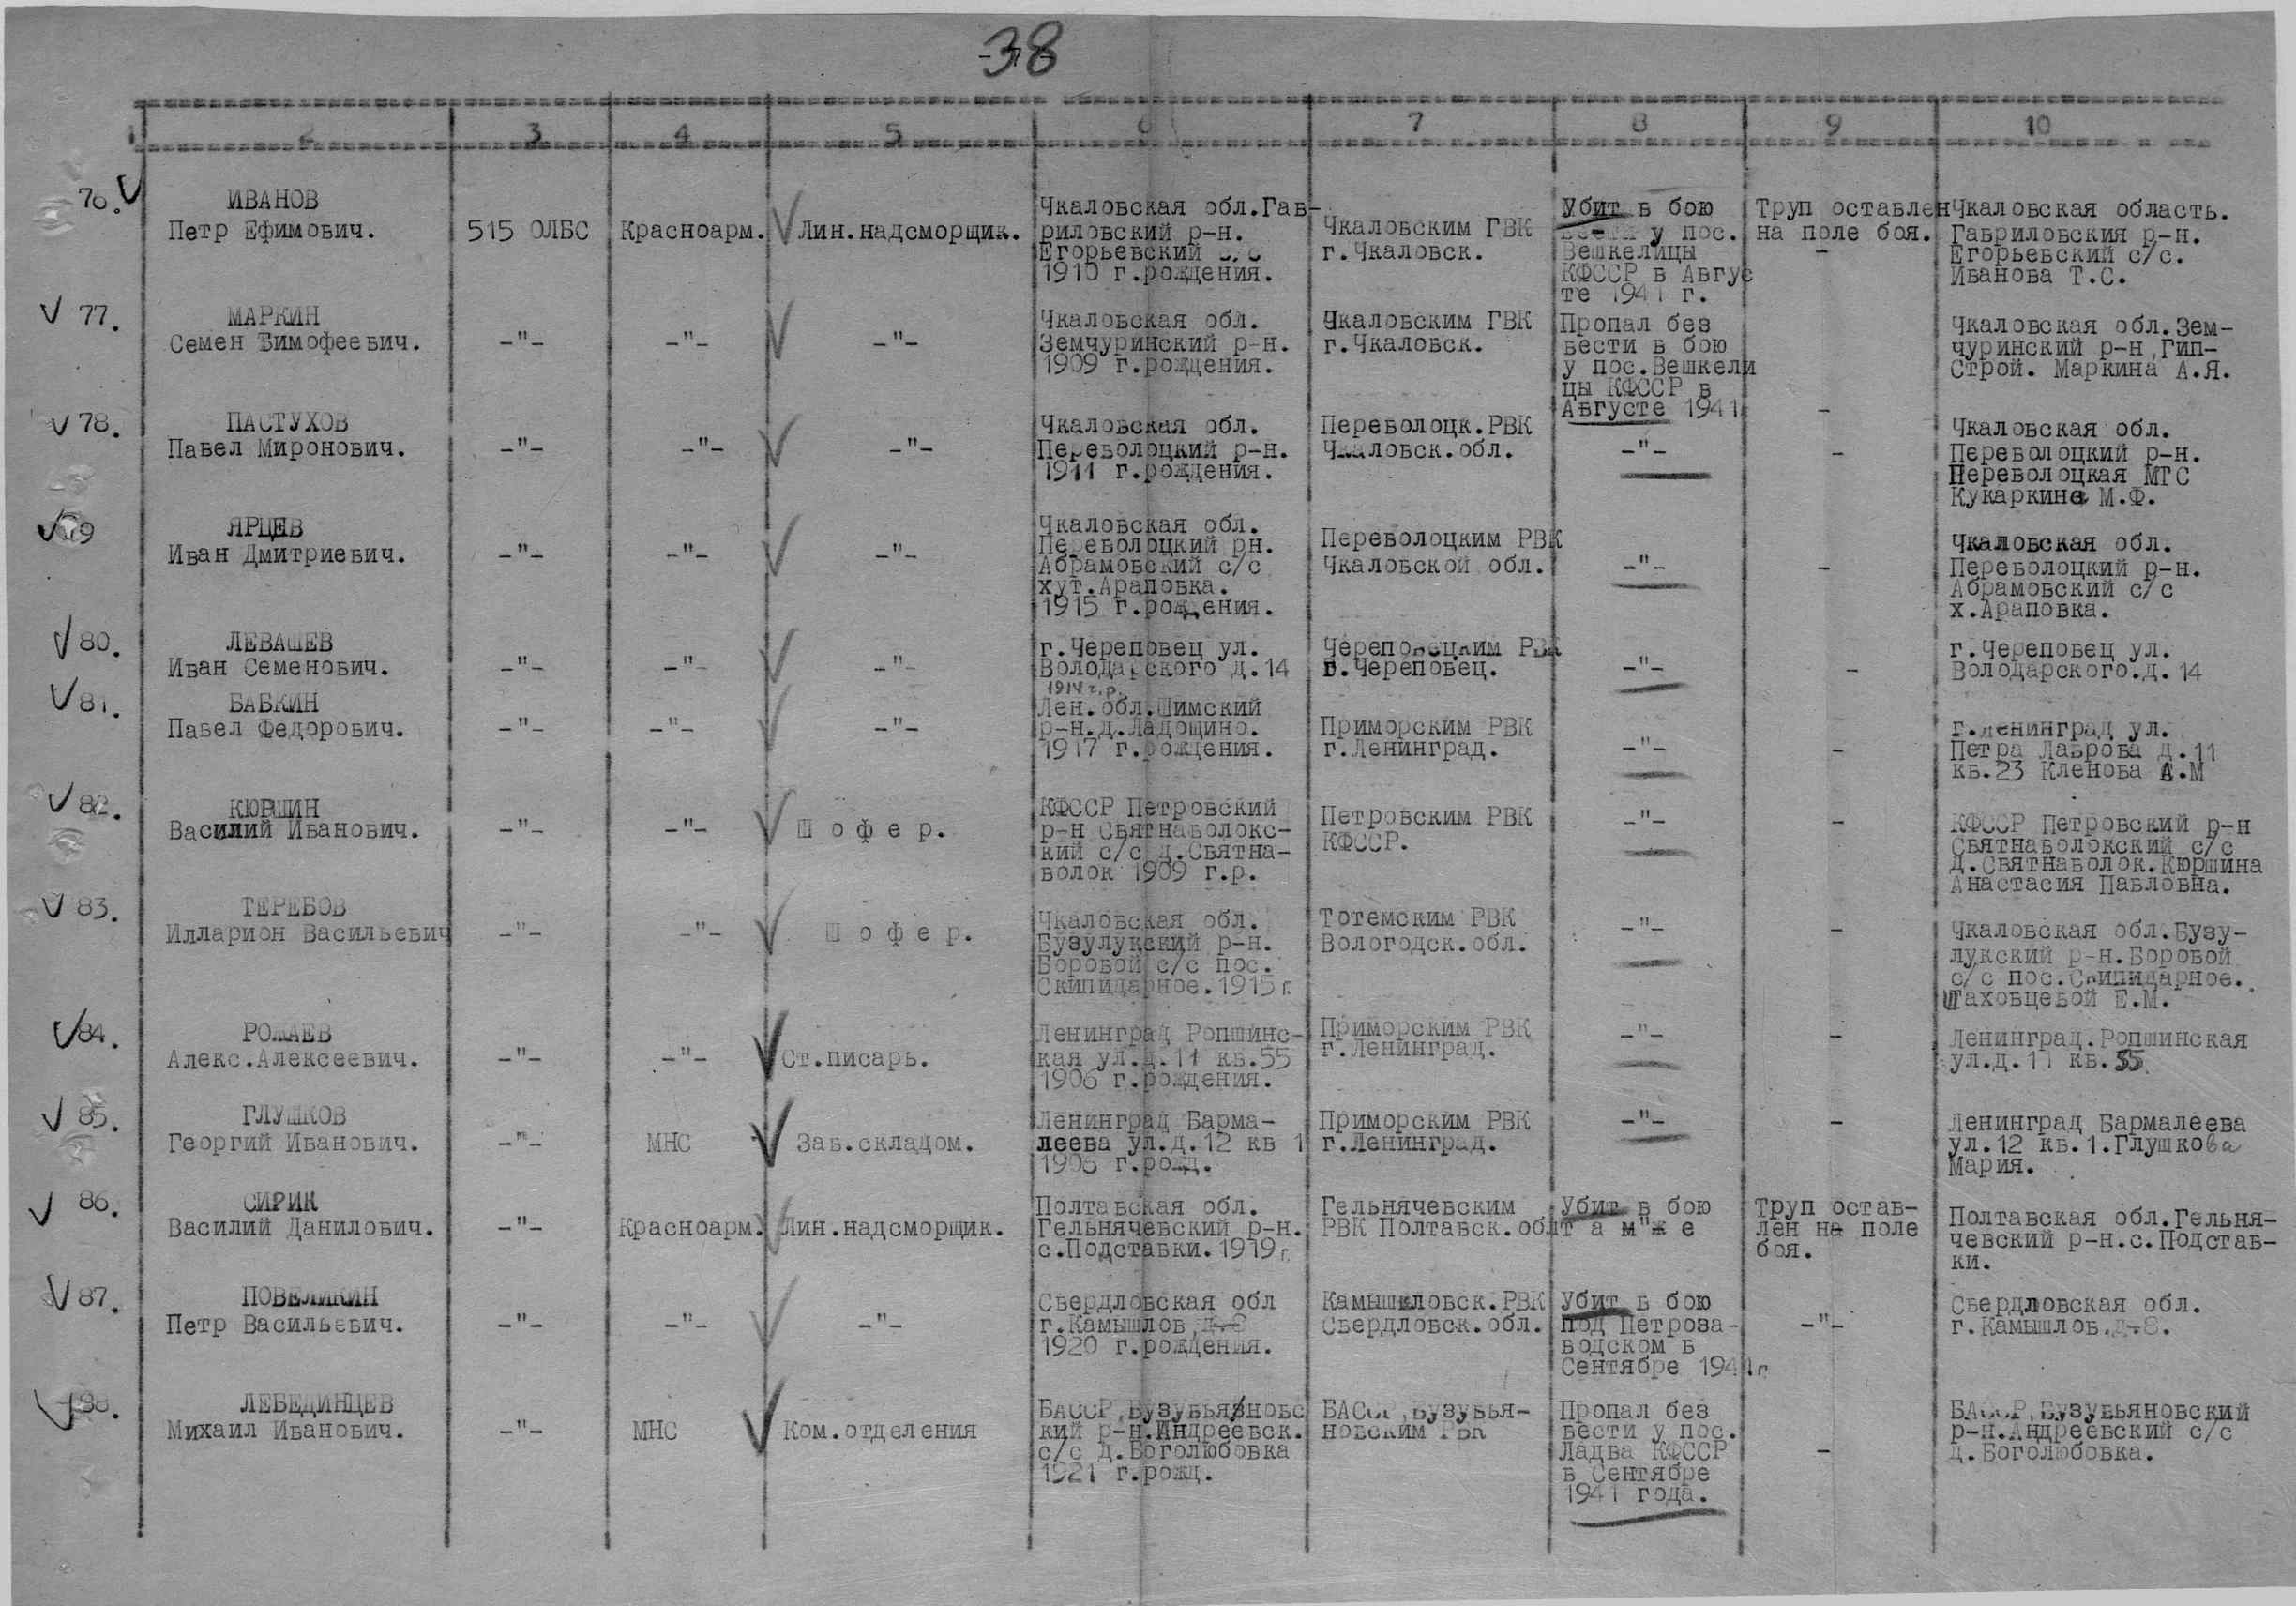 38
1 2 3 4 5 6 7 8 9 10
76. ИВАНОВ
Петр Ефимович. 515 ОЛБС Красноарм. Лин.надсморщик.
Чкаловская обл.Гав-
риловский р-н.
Егорьевский с/с
1910 г.рождения.
Чкаловским ГВК
г.Чкаловск.
Убит в бою
у пос.
Вешкелицы
КФССР в Авгус
те 1941 г.
Труп оставлен
на поле боя.
-
Чкаловская область.
Гавриловския р-н.
Егорьевский с/с.
Иванова Т.С.
77. МАРКИН
Семен Тимофеевич. -"- -"- -"-
Чкаловская обл.
Земчуринский р-н.
1909 г.рождения.
Чкаловским ГВК
г.Чкаловск.
Пропал без
вести в бою
у пос.Вешкели
цы КФССР в
Августе 1941г
-
Чкаловская обл.Зем-
чуринский р-н,Гип-
Строй. Маркина А.Я.
78. ПАСТУХОВ
Павел Миронович. -"- -"- -"-
Чкаловская обл.
Переволоцкий р-н.
1911 г.рождения.
Переволоцк.РВК
Чкаловск.обл.
-"- -
Чкаловская обл.
Переволоцкий р-н.
Переволоцкая МТС
Кукаркина М.Ф.
79 ЯРЦЕВ
Иван Дмитриевич. -"- -"- -"-
Чкаловская обл.
Переволоцкий рн.
Абрамовский с/с
хут.Араповка.
1915 г.рождения.
Переволоцким РВК
Чкаловской обл.
-"- -
Чкаловская обл.
Переволоцкий р-н.
Абрамовский с/с
х.Араповка.
80. ЛЕВАШЕВ
Иван Семенович. -"- -"- -"-
г.Череповец ул.
Володарского д.14
1914 г.р.
Череповецким РВК
г.Череповец.
-"- -
г.Череповец ул.
Володарского.д.14
81. БАБКИН
Павел Федорович. -"- -"- -"-
Лен.обл.Шимский
р-н.д.Ладощино.
1917 г.рождения.
Приморским РВК
г.Ленинград.
-"- -
г.Ленинград ул.
Петра Лаврова д.11
кв.23 Кленова А.М
82. КЮРШИН
Василий Иванович. -"- -"- Ш о ф е р.
КФССР Петровский
р-н Святнаволокс-
кий с/с д.Святна-
волок 1909 г.р.
Петровским РВК
КФССР.
-"- -
КФССР Петровский р-н
Святнаволокский с/с
д.Святнаволок.Кюршина
Анастасия Павловна.
83. ТЕРЕБОВ
Илларион Васильевич -"- -"- Ш о ф е р.
Чкаловская обл.
Бузулукский р-н.
Боровой с/с пос.
Скипидарное.1915г.
Тотемским РВК
Вологодск.обл.
-"- -
Чкаловская обл.Бузу-
лукский р-н.Боровой
с/с пос.Скипидарное.
Шаховцевой Е.М.
84. РОМАЕВ
Алекс.Алексеевич. -"- -"- Ст.писарь.
Ленинград Ропшинс-
кая ул.д.11 кв.55
1906 г.рождения.
Приморским РВК
г.Ленинград.
-"- -
Ленинград.Ропшинская
ул.д.11 кв.55
85. ГЛУШКОВ
Георгий Иванович. -"- МНС Зав.складом.
Ленинград Барма-
леева ул.д.12 кв 1
г.рожд.
Приморским РВК
г.Ленинград.
-"- -
Ленинград Бармалеева
ул.12 кв.1.Глушкова
Мария.
86. СИРИК
Василий Данилович. -"- Красноарм. Лин.надсморщик.
Полтавская обл.
Гельнячевский р-н.
с.Подставки.1919г.
Гельнячевским
РВК Полтавск.обл
Убит в бою
т а м"ж е
Труп остав-
лен на поле
боя.
Полтавская обл.Гельня-
чевский р-н.с.Подстав-
ки.
87. ПОВЕЛИКИН
Петр Васильевич. -"- -"- -"-
Свердловская обл
г.Камышлов,д-8
1920 г.рождения.
Камышловск.РВК
Свердловск.обл.
Убит в бою
под Петроза-
водском в
Сентябре 1941г
-"-
Свердловская обл.
г.Камышлов.д-8.
88. ЛЕБЕДИНЦЕВ
Михаил Иванович. -"- МНС Ком.отделения
БАССР,Бузувьяновс
кий р-н.Андреевск.
с/с д.Боголюбовка
1921 г.рожд.
БАССР,Бузувья-
новским РВК
Пропал без
вести у пос.
Ладва КФССР
в Сентябре
1941 года.
-
БАССР,Бузувьяновский
р-н.Андреевский с/с
д.Боголюбовка.